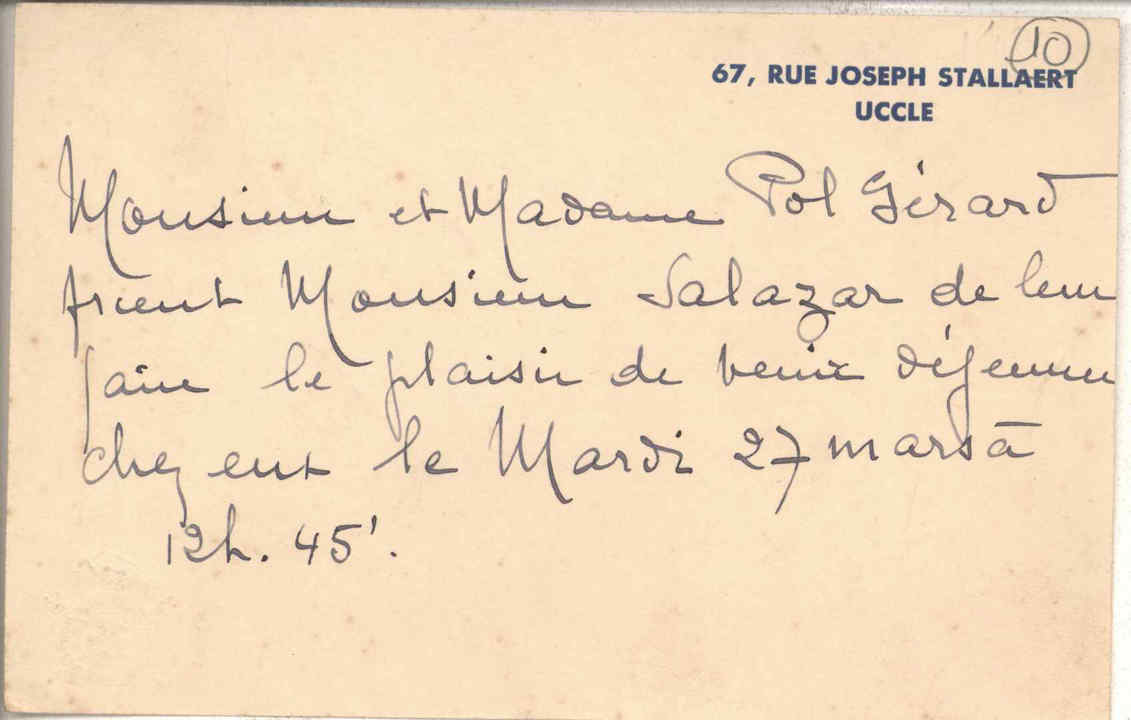 10
67, RUE JOSEPH STALLAERT
UCCLE
Monsieur et Madame Pol Gérard
prient Monsieur Salazar de leur
faire le plaisir de venir déjeuner
chez eux le Mardi 27 mars à
12h. 45'.